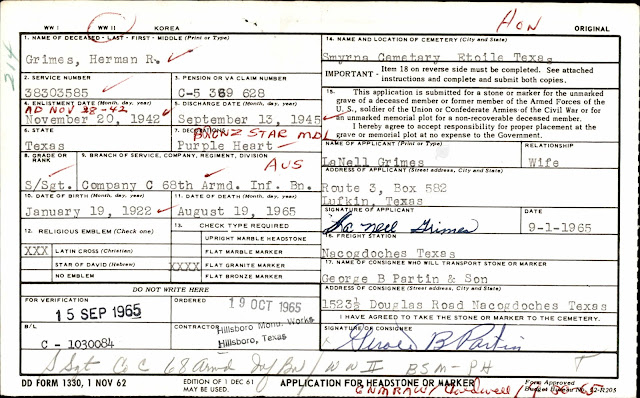 WW I WW II KOREA
Hon ORIGINAL
214
1. NAME OF DECEASED - LAST - FIRST - MIDDLE (Print or Type)
Grimes, Herman R.
14. NAME AND LOCATION OF CEMETERY (City and State)
Smyrna Cemetary Etoile Texas
IMPORTANT - Item 18 on reverse side must be completed. See attached instructions and complete and submit both copies.
2. SERVICE NUMBER
38303585
3. PENSION OR VA CLAIM NUMBER
C-5 369 628
15. This application is submitted for a stone or marker for the unmarked
grave of a deceased member or former member of the Armed Forces of the
U.S., soldier of the Union or Confederate Armies of the Civil War or for
an unmarked memorial plot for a non-recoverable deceased member.
I hereby agree to accept responsibility for proper placement at the
grave or memorial plot at no expense to the Government.
4. ENLISTMENT DATE (Month, day, year)
AD NOV 28-42
November 20, 1942
5. DISCHARGE DATE (Month, day, year)
September 13, 1945
6. STATE
Texas
7. DECORATIONS
BRONZ STAR MDL
Purple Heart
NAME OF APPLICANT (Print or Type)
LaNell Grimes
RELATIONSHIP
Wife
8. GRADE OR RANK
S/Sgt.
9. BRANCH OF SERVICE, COMPANY, REGIMENT, DIVISION
AUS
Company C 68th Armd. Inf. Bn.
ADDRESS OF APPLICANT (Street address, City and State)
Route 3, Box 582
Lufkin, Texas
10. DATE OF BIRTH (Month, day, year)
January 19, 1922
11. DATE OF DEATH (Month, day, year)
August 19, 1965
SIGNATURE OF APPLICANT
La nell Grimes
DATE
9-1-1965
12. RELIGIOUS EMBLEM (Check one)
XXX LATIN CROSS (Christian)
STAR OF DAVID (Hebrew)
NO EMBLEM
13. CHECK TYPE REQUIRED
UPRIGHT MARBLE HEADSTONE
FLAT MARBLE MARKER
XXXX FLAT GRANITE MARKER
FLAT BRONZE MARKER
16. FREIGHT STATION
Nacogdoches Texas
17. NAME OF CONSIGNEE WHO WILL TRANSPORT STONE OR MARKER
George B Partin & Son
DO NOT WRITE HERE
ADDRESS OF CONSIGNEE (Street address, City and State)
1523½ Douglas Road Nacogdoches Texas
FOR VERIFICATION
15 SEP 1965
ORDERED
19 OCT 1965
I HAVE AGREED TO TAKE THE STONE OR MARKER TO THE CEMETERY.
B/L
C - 1030084
CONTRACTOR
Hillsboro Monu. Works
Hillsboro, Texas
SIGNATURE OF CONSIGNEE
George B Partin
S Sgt Co C 68 Armd Inf Bn / WW II BSM-PH
DD FORM 1330, 1 NOV 62
EDITION OF 1 DEC 61
APPLICATION FOR HEADSTONE OR MARKER
Form Approved
Budget Bureau No.